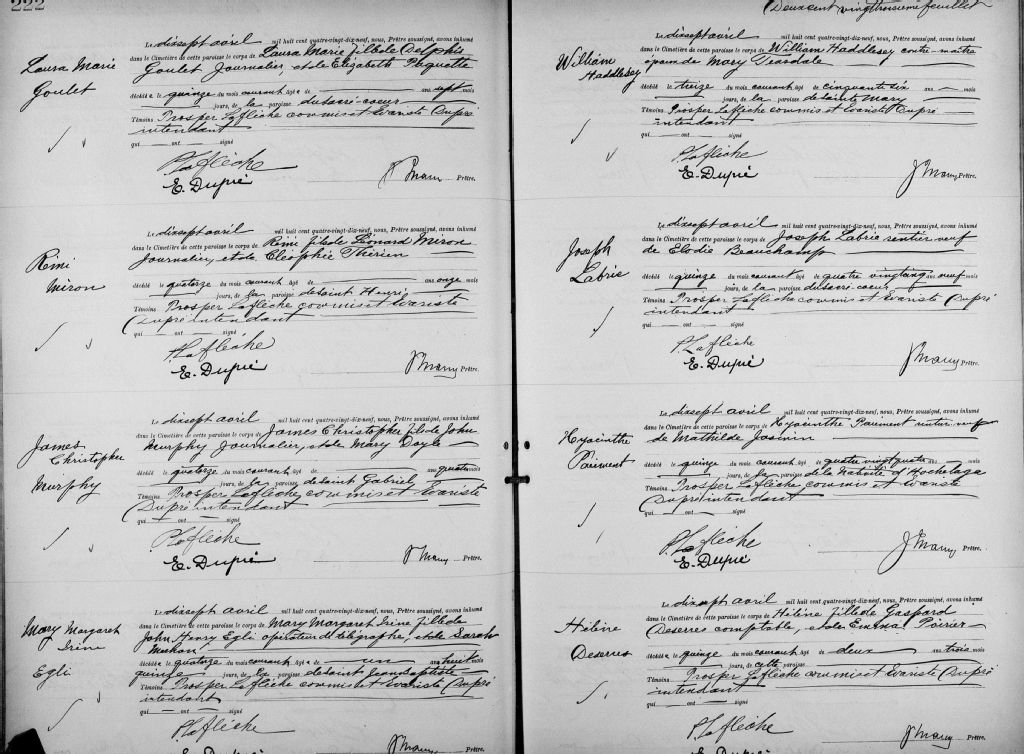 222
Laura Marie
Goulet
Le dixsept avril mil huit cent quatre-vingt-dix-neuf, nous, Prêtre soussigné, avons inhumé
dans le Cimetière de cette paroisse le corps de Laura Marie fille de Delphis
Goulet Journalier, et de Elizabeth Paquette
décédée le quinze du mois courant âgée de ans sept mois
jours, de la paroisse du sacré-coeur
Témoins Prosper Laflèche commis et Evariste Dupré
intendant
qui — ont — signé
P. Laflèche
E. Dupré
Prêtre.
Rémi
Miron
Le dixsept avril mil huit cent quatre-vingt-dix-neuf, nous, Prêtre soussigné, avons inhumé
dans le Cimetière de cette paroisse le corps de Rémi fils de Léonard Miron
Journalier, et de Cléophée Therien
décédé le quatorze du mois courant âgé de ans onze mois
jours, de la paroisse de saint Henri
Témoins Prosper Laflèche commis et Evariste
Dupré intendant
qui — ont — signé
P. Laflèche
E. Dupré
Prêtre.
James
Christopher
Murphy
Le dixsept avril mil huit cent quatre-vingt-dix-neuf, nous, Prêtre soussigné, avons inhumé
dans le Cimetière de cette paroisse le corps de James Christopher fils de John
Murphy Journalier, et de Mary Doyle
décédé le quatorze du mois courant âgé de ans quatre mois
jours, de la paroisse de saint Gabriel
Témoins Prosper Laflèche, commis et Evariste
Dupré intendant
qui — ont — signé
P. Laflèche
E. Dupré
Prêtre.
Mary Margaret
Irine
Egli
Le dixsept avril mil huit cent quatre-vingt-dix-neuf, nous, Prêtre soussigné, avons inhumé
dans le Cimetière de cette paroisse le corps de Mary Margaret Irine fille de
John Henry Egli opérateur de télégraphe, et de Sarah
décédée le quatorze du mois courant âgée de un ans huit mois
quinze jours, de la paroisse de saint Jean Baptiste
Témoins Prosper Laflèche commis et Evariste Dupré
intendant
qui — ont — signé
P. Laflèche
E. Dupré
Prêtre.
(Deux cent vingt troisième feuillet
William
Haddlesey
Le dixsept avril mil huit cent quatre-vingt-dix-neuf, nous, Prêtre soussigné, avons inhumé
dans le Cimetière de cette paroisse le corps de William Haddlesey contre-maître
époux de Mary Teasdale
décédé le treize du mois courant âgé de cinquante six ans mois
jours, de la paroisse de sainte Mary
Témoins Prosper Laflèche commis et Evariste Dupré
intendant
qui — ont — signé
P. Laflèche
E. Dupré
Prêtre.
Joseph
Labrie
Le dixsept avril mil huit cent quatre-vingt-dix-neuf, nous, Prêtre soussigné, avons inhumé
dans le Cimetière de cette paroisse le corps de Joseph Labrie rentier, veuf
de Elodie Beauchamp
décédé le quinze du mois courant âgé de quatre vingt cinq ans neuf mois
jours, de la paroisse du sacré coeur
Témoins Prosper Laflèche commis et Evariste Dupré
intendant
qui — ont — signé
P. Laflèche
E. Dupré
Prêtre.
Hyacinthe
Paiement
Le dixsept avril mil huit cent quatre-vingt-dix-neuf, nous, Prêtre soussigné, avons inhumé
dans le Cimetière de cette paroisse le corps de Hyacinthe Paiement rentier veuf
de Mathilde Jasmin
décédé le quinze du mois courant âgé de quatre vingt quatre ans mois
jours, de la paroisse de la Nativité d'Hochelaga
Témoins Prosper Laflèche commis et Evariste
Dupré intendant
qui — ont — signé
P. Laflèche
E. Dupré
Prêtre.
Hélène
Deserres
Le dixsept avril mil huit cent quatre-vingt-dix-neuf, nous, Prêtre soussigné, avons inhumé
dans le Cimetière de cette paroisse le corps de Hélène fille de Gaspard
Deserres comptable, et de Emma Poirier
décédée le quinze du mois courant âgée de deux ans trois mois
jours, de cette paroisse
Témoins Prosper Laflèche commis et Evariste Dupré
intendant
qui — ont — signé
P. Laflèche
E. Dupré
Prêtre.